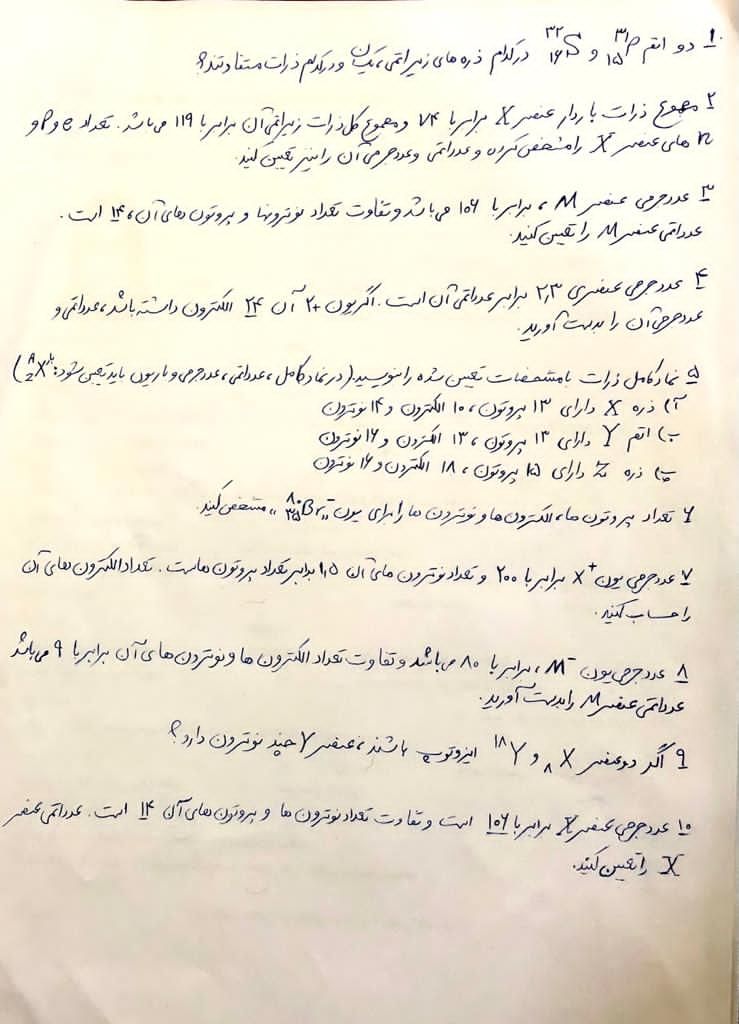 ۱. دو اتم ³¹₁₅P و ³²₁₆S در کدام ذره های زیراتمی، یکسان و در کدام ذرات متفاوتند؟
۲ مجموع ذرات باردار عنصر X برابر با ۷۴ و مجموع کل ذرات زیراتمی آن برابر با ۱۱۹ می باشد. تعداد e و P و
n های عنصر X را مشخص کرده و عدد اتمی و عدد جرمی آن را نیز تعیین کنید.
۳ عدد جرمی عنصر M، برابر با ۱۰۶ می باشد و تفاوت تعداد نوترونها و پروتون های آن، ۱۴ است.
عدد اتمی عنصر M را تعیین کنید.
۴ عدد جرمی عنصری ۲٫۳ برابر عدد اتمی آن است. اگر یون ۲+ آن ۲۴ الکترون داشته باشد، عدد اتمی و
عدد جرمی آن را بدست آورید.
۵ نماد کامل ذرات با مشخصات تعیین شده را بنویسید (در نماد کامل، عدد اتمی، عدد جرمی و بار یون باید تعیین شود: ᴬ_Z X^بار)
آ) ذره X دارای ۱۳ پروتون، ۱۰ الکترون و ۱۴ نوترون
ب) اتم Y دارای ۱۳ پروتون، ۱۳ الکترون و ۱۶ نوترون
پ) ذره Z دارای ۱۵ پروتون، ۱۸ الکترون و ۱۶ نوترون
۶ تعداد پروتون ها، الکترون ها و نوترون ها را برای یون «⁸⁰₃₅Br⁻» مشخص کنید.
۷ عدد جرمی یون X⁺ برابر با ۲۰۰ و تعداد نوترون های آن ۱٫۵ برابر تعداد پروتون هاست. تعداد الکترون های آن
را حساب کنید.
۸ عدد جرمی یون M⁻، برابر با ۸۰ می باشد و تفاوت تعداد الکترون ها و نوترون های آن برابر با ۹ می باشد
عدد اتمی عنصر M را بدست آورید.
۹ اگر دو عنصر ₈X و ¹⁸Y ایزوتوپ باشند، عنصر Y چند نوترون دارد؟
۱۰ عدد جرمی عنصر X برابر با ۱۰۶ است و تفاوت تعداد نوترون ها و پروتون های آن ۱۴ است. عدد اتمی عنصر
X را تعیین کنید.